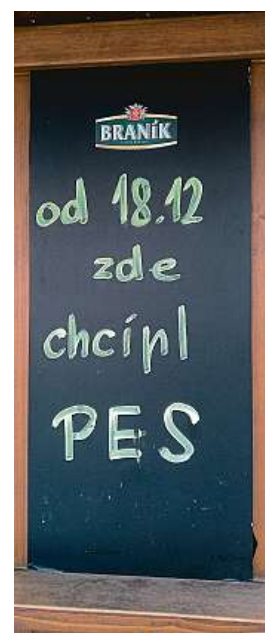 BRANÍK
od 18.12
zde
chcípl
PES